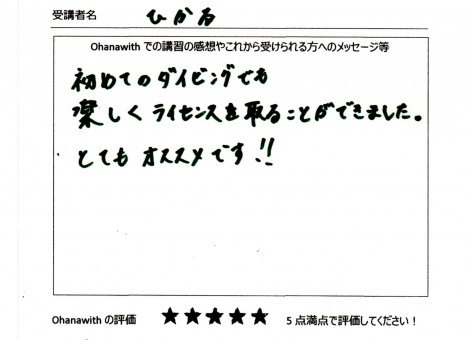 受講者名 ひかる
Ohanawith での講習の感想やこれから受けられる方へのメッセージ等
初めてのダイビングでも
楽しくライセンスを取ることができました。
とてもオススメです!!
Ohanawith の評価 ★★★★★ 5 点満点で評価してください！